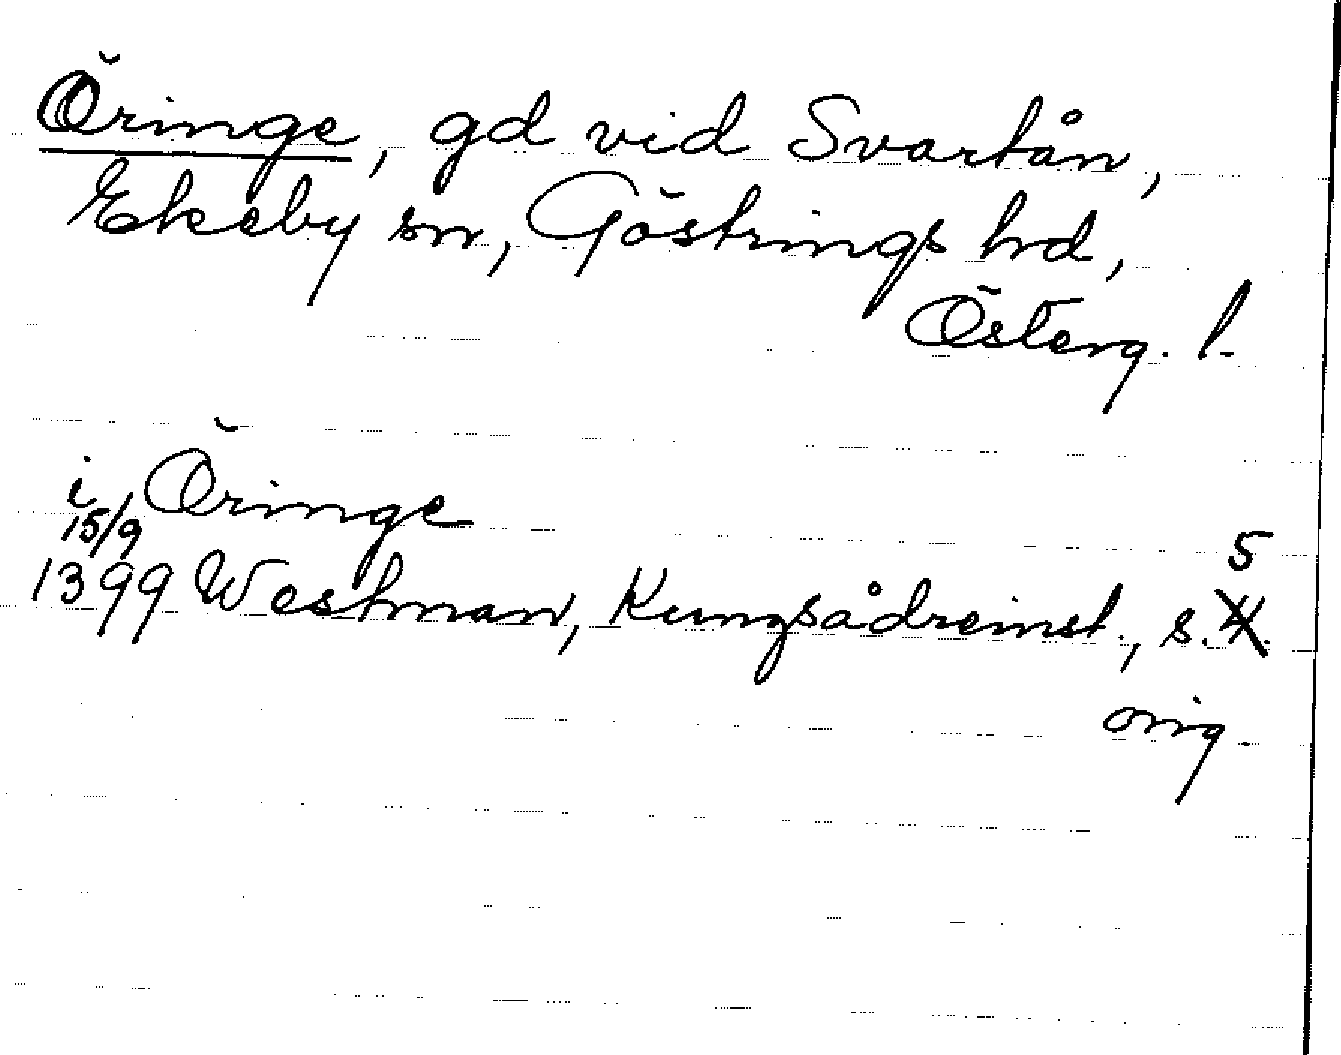 Öringe, gd vid Svartån,
Ekeby sn, Göstrings hd,
Österg. l.
i Öringe
15/9
1399 Westman, Kungsådreinst., s. 5
orig.